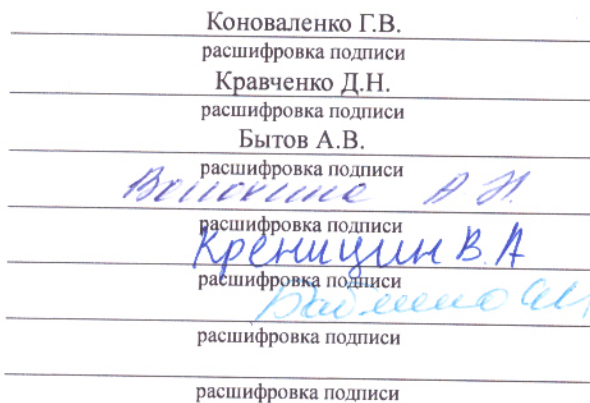 Коноваленко Г.В.
расшифровка подписи
Кравченко Д.Н.
расшифровка подписи
Бытов А.В.
расшифровка подписи
А Н.
расшифровка подписи
Креницин В.А
расшифровка подписи
расшифровка подписи
расшифровка подписи